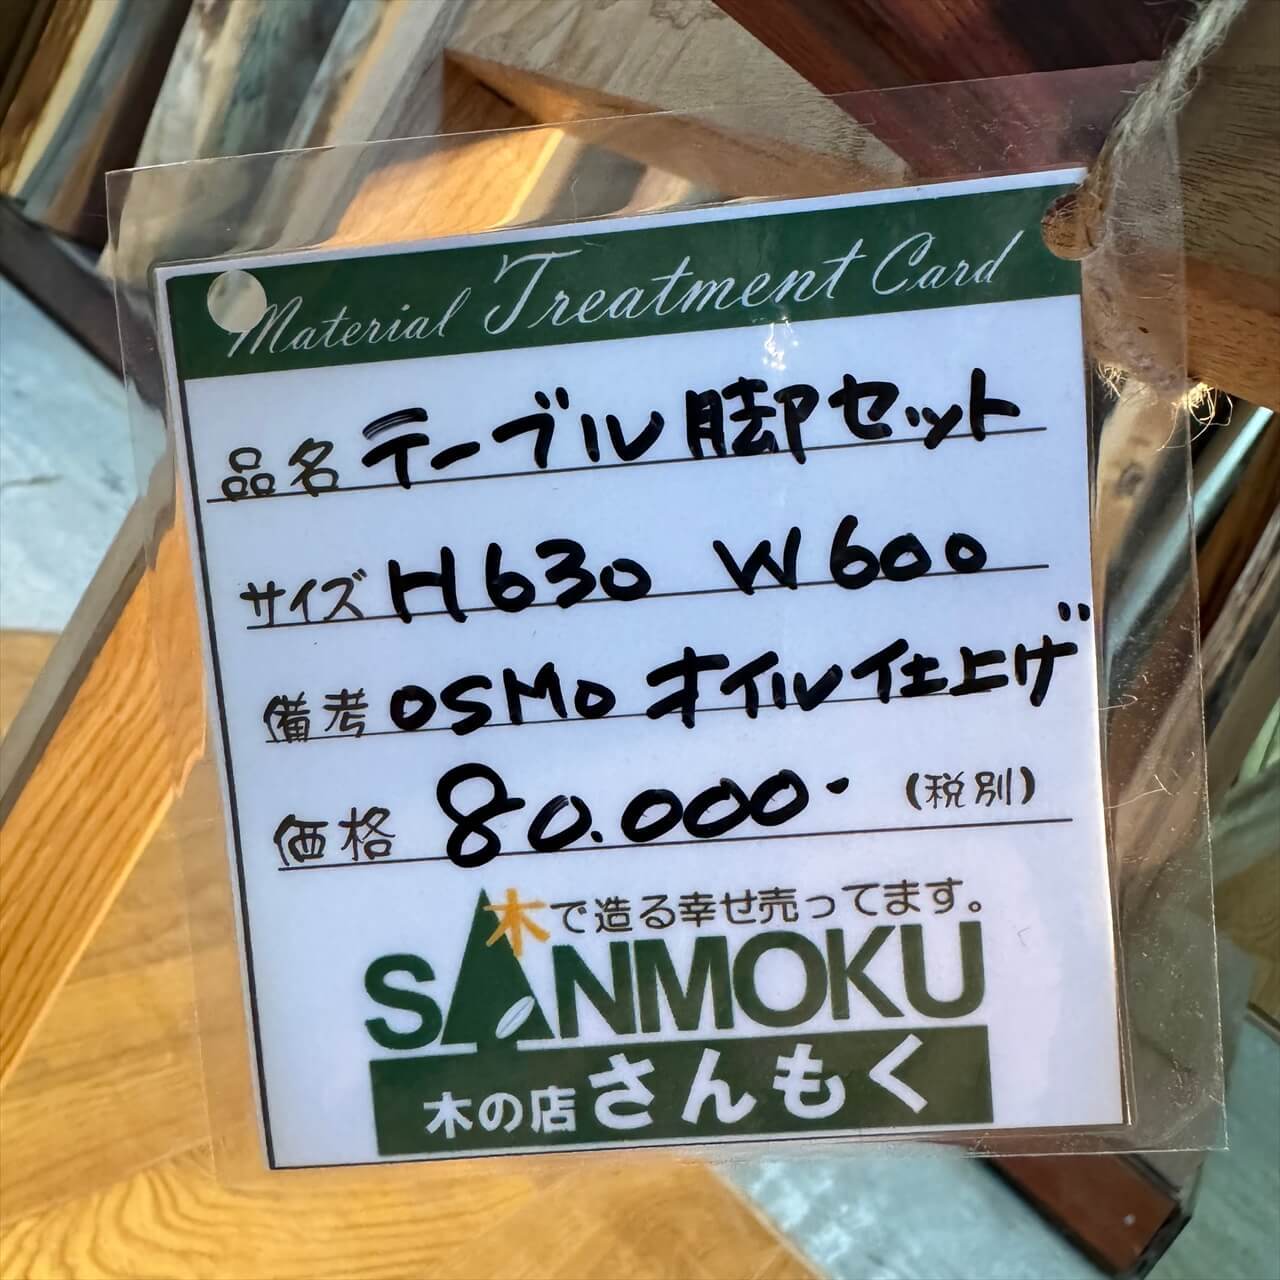 Material Treatment Card
品名 テーブル脚セット
サイズ H630 W600
備考 OSMOオイル仕上げ
価格 80.000- (税別)
木で造る幸せ売ってます。
SANMOKU
木の店さんもく